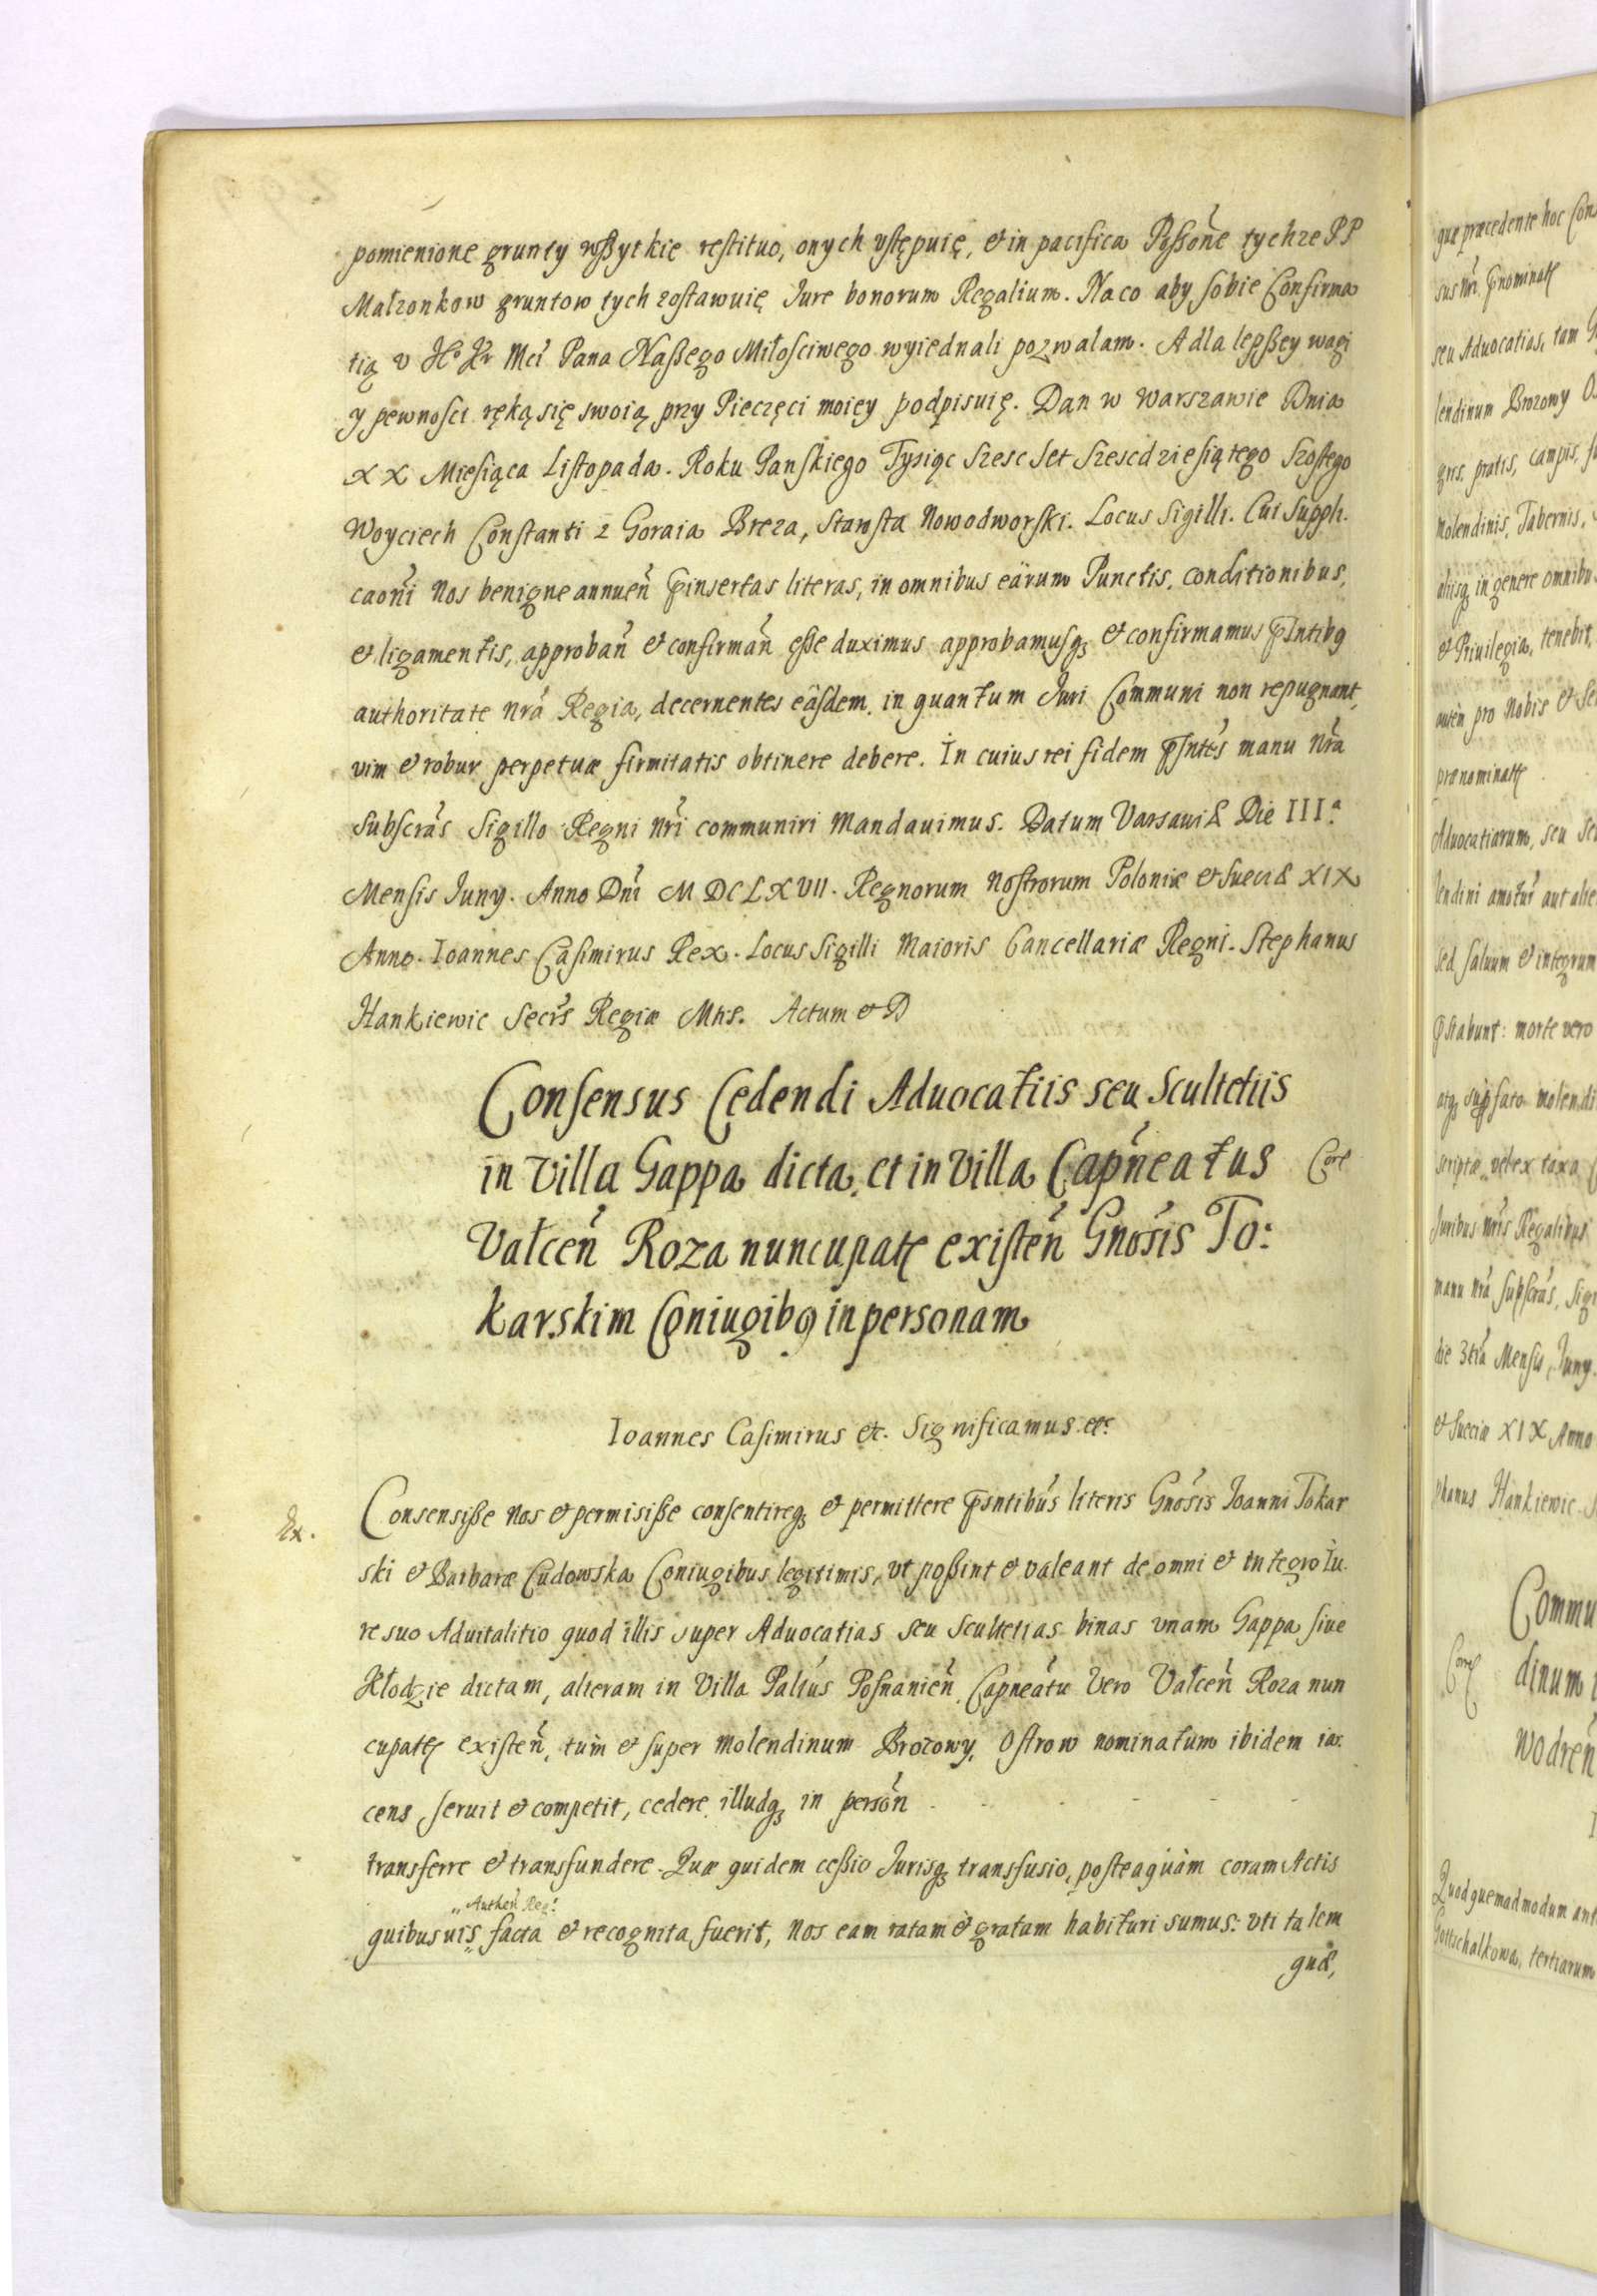 pomienione grunty wßytkie restituo, onych ustępuię, et in pacifica Possone tychze PP
Małzonkow gruntow tych zostawuię Jure bonorum Regalium. Naco aby sobie Confirma
tią v Mci Pana Naßego Miłosciwego wyiednali pozwalam. Adla lepßey wagi
y pewnosci ręką się swoią przy Pieczęci moiey podpisuię. Dan w Warszawie Dnia
XX Miesiąca Listopada. Roku Panskiego Tysiąc Szesc Set Szescdziesiątego Szostego
Woyciech Constanti z Goraia Breza, Starosta Nowodworski. Locus Sigilli. Cui Suppli.
caoni Nos benigne annuen pinsertas literas, in omnibus earum Punctis, conditionibus,
et ligamentis, approban et confirman esse duximus approbamusq et confirmamus pntibq
authoritate nra Regia, decernentes easdem, in quantum Juri Communi non repugnant,
vim et robur perpetuæ firmitatis obtinere debere. In cuius rei fidem pntes manu nra
subscras Sigillo Regni nri communiri mandauimus. Datum Varsauiæ Die IIIa.
Mensis Juny. Anno Dni MDCLXVII. Regnorum Nostrorum Poloniæ et Sueciæ XIX
Anno. Ioannes Casimirus Rex. Locus Sigilli Maioris Cancellariæ Regni. Stephanus
Hankiewic Secrs Regiæ Mtis. Actum et D
Consensus Cedendi Aduocatiis seu Scultetiis
in Villa Gappa dicta, et in Villa Capneatus Corr
Vałcen Roza nuncupate existen Gnosis To:
karskim Coniugibq in personam
Ioannes Casimirus etc. Significamus etc.
Ex. Consensiße Nos et permisiße consentireq et permittere psntibus literis Gnosis Joanni Tokar
ski et Barbaræ Cudowska Coniugibus legitimis, vt poßint et valeant de omni et integro Iu.
re suo Aduitalitio quod illis super Aduocatias seu Scultetias binas vnam Gappa siue
Kłodzie dictam, alteram in Villa Paltus Posnanien, Capneatu Vero Vałcen Roza nun
cupate existen, tum et super molendinum Brozowy, Ostrow nominatum ibidem ia.
cens seruit et competit, cedere, illudq in person - - - - -
transferre et transfundere. Quæ quidem ceßio Jurisq transfusio, posteaquam coram Actis
Authen Reg:
quibusuis facta et recognita fuerit, Nos eam ratam et gratam habituri sumus: vti talem
quæ,
quæ præcedente hoc Cons
sus nri pnominate
seu Aduocatias, tam
lendinum Brozowy Os
gris, pratis, campis,
molendinis, Tabernis,
aliisq in genere omnibus
et Priuilegia, tenebit,
autem pro Nobis et Se
prænominate
Aduocatiarum, seu Sc
lendini amotus aut alie
sed saluum et integrum
pstabunt: morte vero
atq supfato molendi
scripta vel ex taxa
Juribus nris Regalibus
manu nra Supscras, Sigi
die 3tia Mensis Juny.
et Sueciæ XIX Anno
phanus Hankiewic
Commu
Corr dinum
wodren
Quod quemadmodum ant
Gottschalkowa, tertiarum